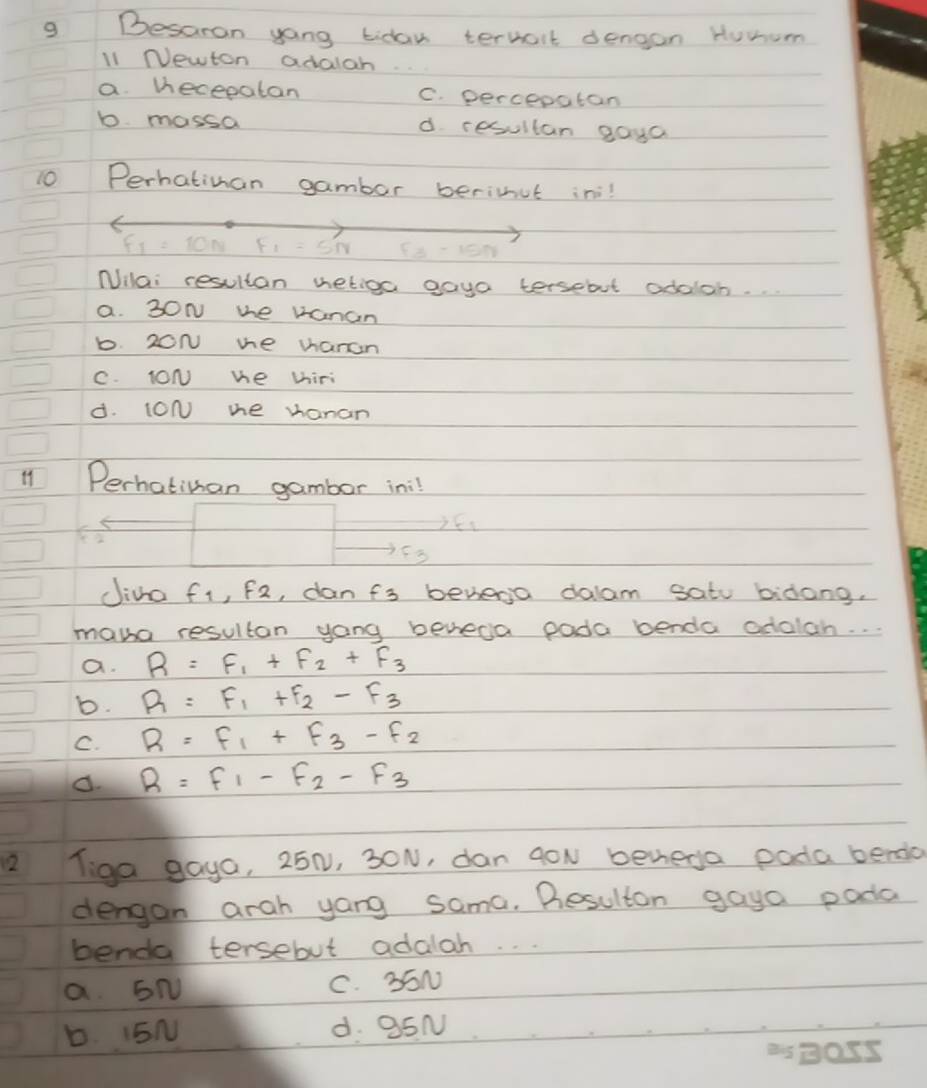 9 Besaran yang tidak terkait dengan Hukum
11 Newton adalah ...
a. kecepatan c. percepatan
b. massa d. resultan gaya
10 Perhatikan gambar berikut ini!
F1 = 10N F1 = 5N F3 - 15N
Nilai resultan ketiga gaya tersebut adalah ...
a. 30N ke kanan
b. 20N ke kanan
c. 10N ke kiri
d. 10N ke kanan
11 Perhatikan gambar ini!
F1
F2
F3
Jika f1, f2, dan f3 bekerja dalam satu bidang.
maka resultan yang bekerja pada benda adalah ...
a. R = F1 + F2 + F3
b. R = F1 + F2 - F3
c. R = F1 + F3 - F2
d. R = F1 - F2 - F3
12 Tiga gaya, 25N, 30N, dan 40N bekerja pada benda
dengan arah yang sama. Resultan gaya pada
benda tersebut adalah ...
a. 5N c. 35N
b. 15N d. 95N
BOSS